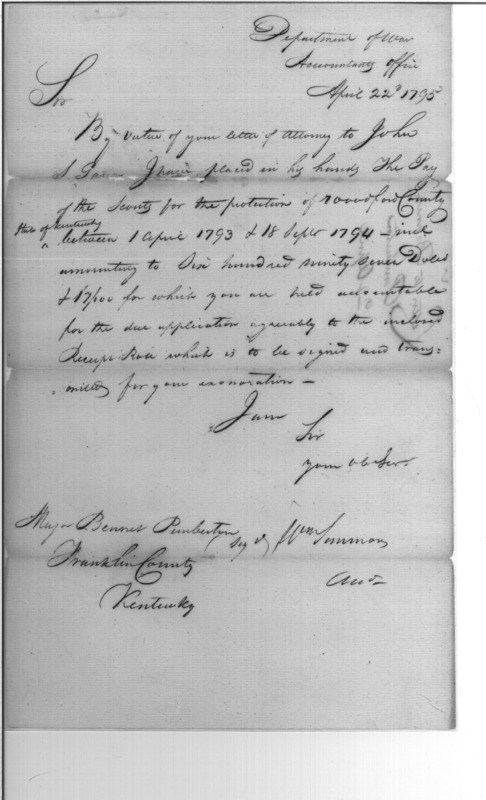 Department of War
Accountants office
April 22d 1795
Sir
By virtue of your letter of attorney to John
I have placed in his hands the Pay
of the Scouts for the protection of Woodford County
State of Kentucky
between 1 April 1793 & 18 Septr 1794 – incl
amounting to Six hundred ninety seven Dolls
& 17/100 for which you are held accountable
for the due application agreeably to the inclosed
Receipt Roll which is to be signed and trans=
=mitted for your exoneration –
I am
Sir
your ob Ser
Major Bennet Pemberton
Franklin County
Kentucky
Sigd Wm Simmons
Acct